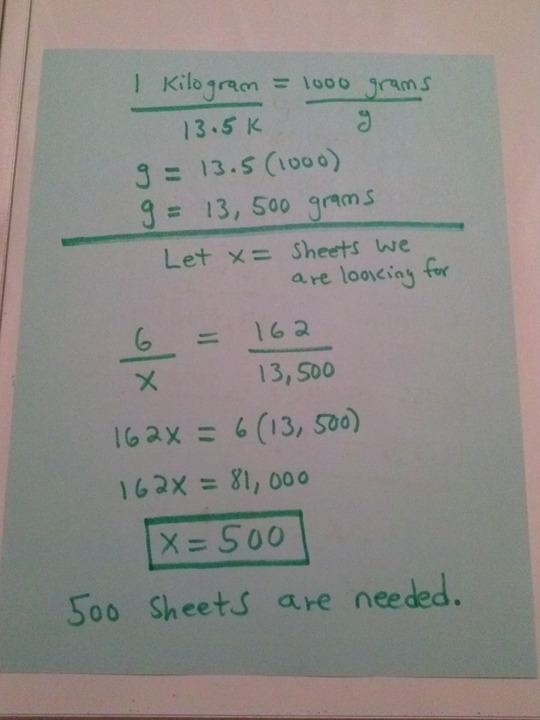 1 Kilogram = 1000 grams
13.5 K g
g = 13.5 (1000)
g = 13,500 grams
Let x = sheets we
are looking for
6 = 162
x 13,500
162x = 6(13,500)
162x = 81,000
x = 500
500 sheets are needed.